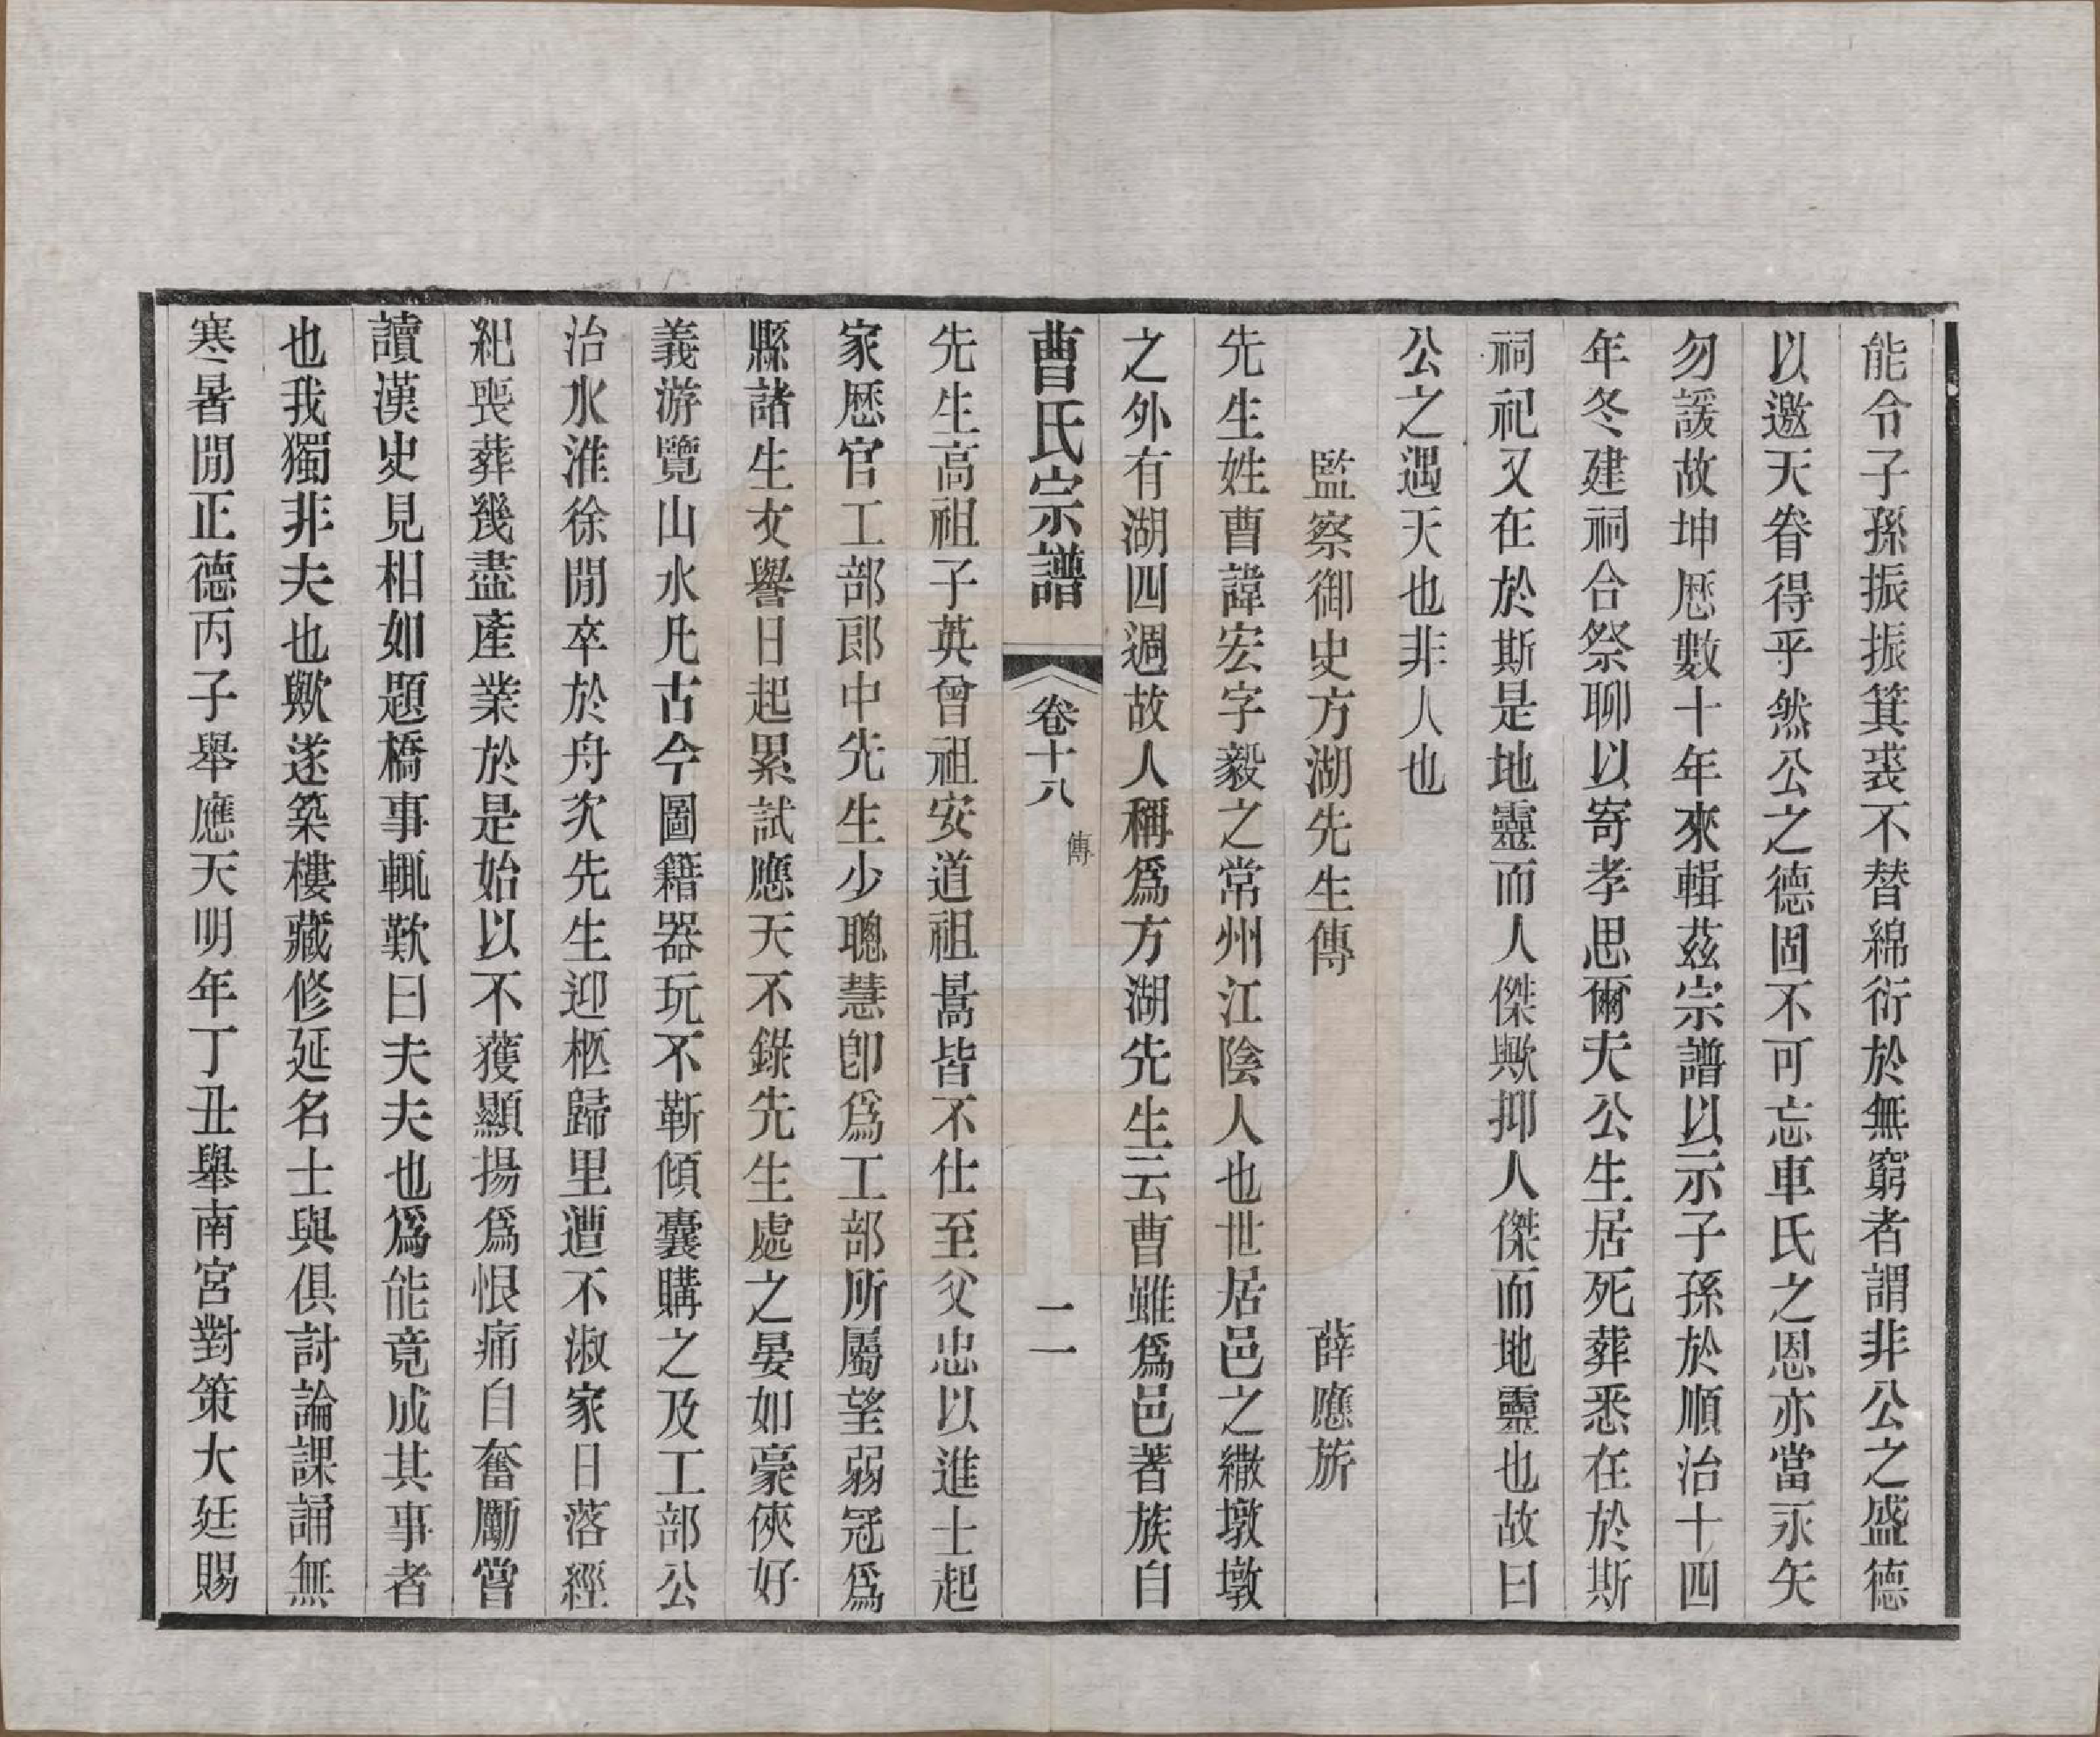 能令子孫振振箕裘不替綿衍於無窮者謂非公之盛德
以邀天眷得乎然公之德固不可忘車氏之恩亦當永矢
勿諼故坤厯數十年來輯茲宗譜以示子孫於順治十四
年冬建祠合祭聊以寄孝思爾夫公生居死葬悉在於斯
祠祀又在於斯是地靈而人傑歟抑人傑而地靈也故曰
公之遇天也非人也
監察御史方湖先生傳　薛應旂
先生姓曹諱宏字毅之常州江陰人也世居邑之繖墩墩
之外有湖四週故人稱爲方湖先生云曹雖爲邑著族自
曹氏宗譜　卷十八　傳　二一
先生高祖子英曾祖安道祖暠皆不仕至父忠以進士起
家厯官工部郎中先生少聰慧卽爲工部所屬望弱冠爲
縣諸生文譽日起累試應天不錄先生處之晏如豪俠好
義游覽山水凡古今圖籍器玩不靳傾囊購之及工部公
治水淮徐閒卒於舟次先生迎柩歸里遭不淑家日落經
紀喪葬幾盡產業於是始以不獲顯揚爲恨痛自奮勵嘗
讀漢史見相如題橋事輒歎曰夫夫也爲能竟成其事者
也我獨非夫也歟遂築樓藏修延名士與俱討論課誦無
寒暑閒正德丙子舉應天明年丁丑舉南宮對策大廷賜